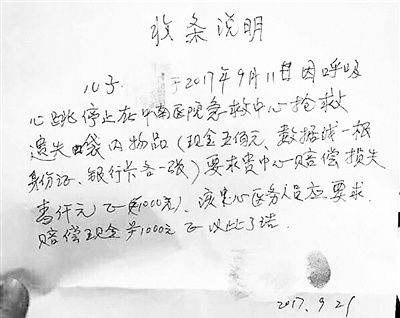 收条说明
儿子 于2017年9月11日因呼吸
心跳停止在中南医院急救中心抢救
遗失口袋内物品(现金五佰元、数据线一根
身份证、银行卡各一张)要求贵中心赔偿损失
壹仟元正(¥1000元)、该中心医务人员应要求
赔偿现金¥1000元正以此了结.
2017.9.21